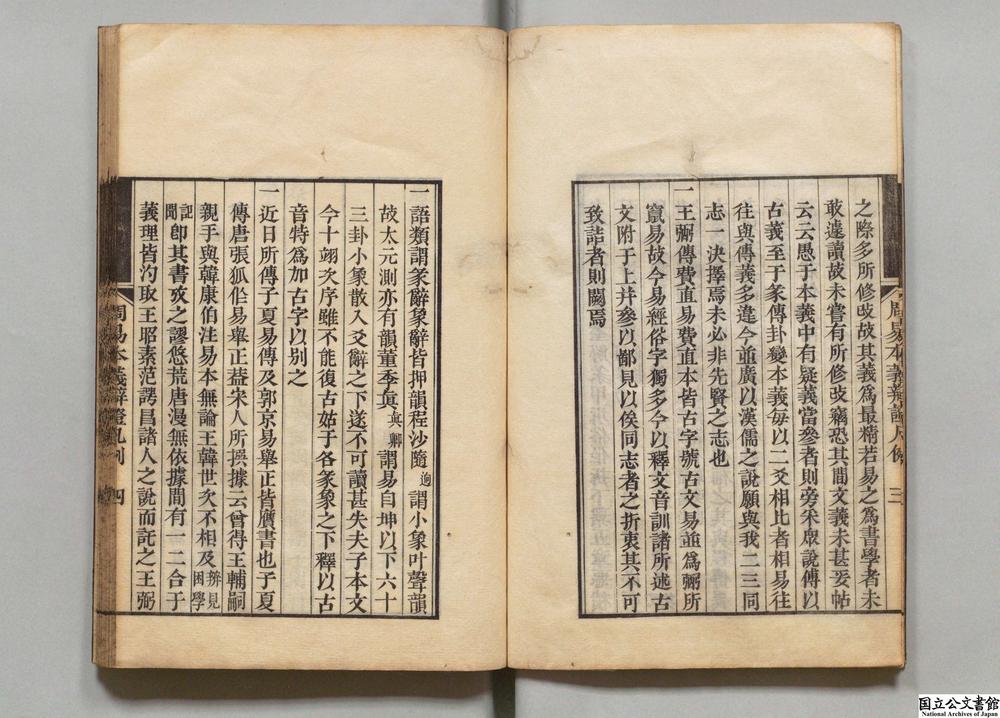 之際多所修改故其義爲最精若易之爲書學者未
敢遽讀故未嘗有所修改竊恐其間文義未甚妥帖
云云愚于本義中有疑義當參者則旁釆眾說傅以
古義至于彖傳卦變本義每以二爻相比者相易往
往與傳義多違今並廣以漢儒之說願與我二三同
志一決擇焉未必非先賢之志也
一王弼傳費直易費直本皆古字號古文易並爲弼所
竄易故今易經俗字獨多今以釋文音訓諸所述古
文附于上并參以鄙見以俟同志者之折衷其不可
致詰者則闕焉
周易本義辨證凡例 三
一語類謂彖辭象辭皆押韻程沙隨迥謂小象叶聲韻
故太元測亦有韻董季真真卿謂易自坤以下六十
三卦小象散入爻辭之下遂不可讀甚失夫子本文
今十翊次序雖不能復古姑于各彖象之下釋以古
音特爲加古字以別之
一近日所傳子夏易傳及郭京易舉正皆贋書也子夏
傳唐張狐作易舉正葢宋人所撰據云曾得王輔嗣
親手與韓康伯注易本無論王韓世次不相及辨見困學
記聞卽其書攷之謬悠荒唐漫無依據間有一二合于
義理皆沟取王昭素范諤昌諸人之說而託之王弼
周易本義辨證凡例 四
国立公文書館
National Archives of Japan